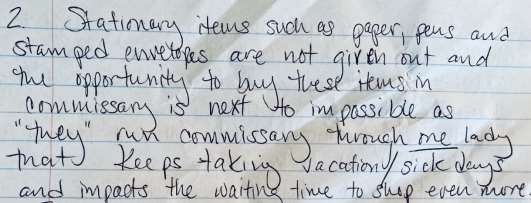 2 Stationary items such as paper, pens and
stamped envelopes are not given out and
the opportunity to buy these items in
commissary is next to impossible as
"they" run commissary through one lady
that keeps taking vacation/sick days
and impacts the waiting time to shop even more.